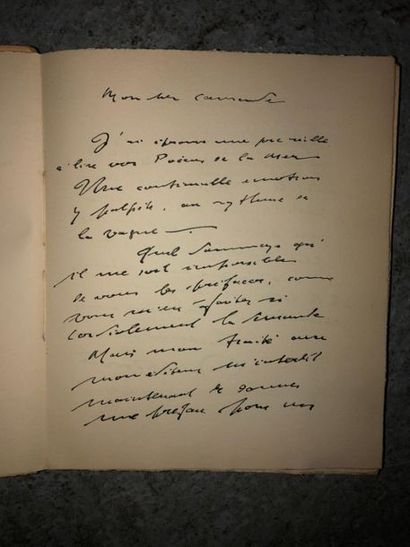 Mon cher camarade
J'ai éprouvé une joie réelle
à lire vos Poèmes de la Mer
Une continuelle émotion
y palpite, au rythme de
la vague.
Quel dommage qu'
il me soit impossible
de vous les préfacer, comme
vous m'en
cordialement la demande
Mais mon traité avec
mon éditeur m'interdit
maintenant de donner
une préface pour un